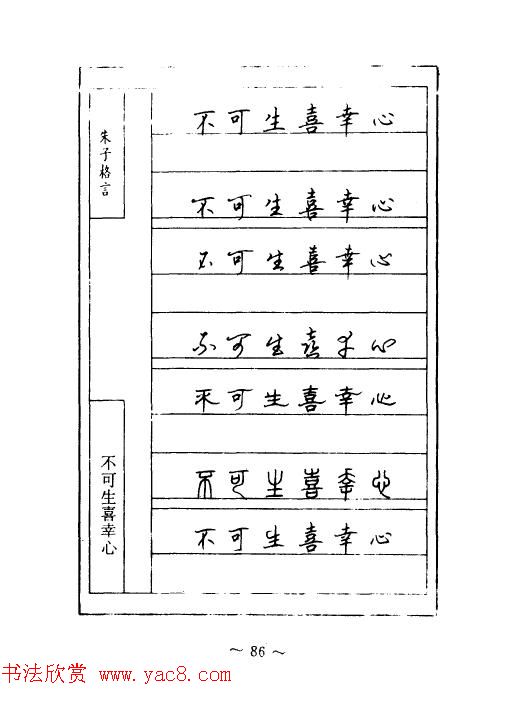 朱子格言
不可生喜幸心
不可生喜幸心
不可生喜幸心
不可生喜幸心
不可生喜幸心
不可生喜幸心
不可生喜幸心
不可生喜幸心
～ 86 ～
书法欣赏 www.yac8.com